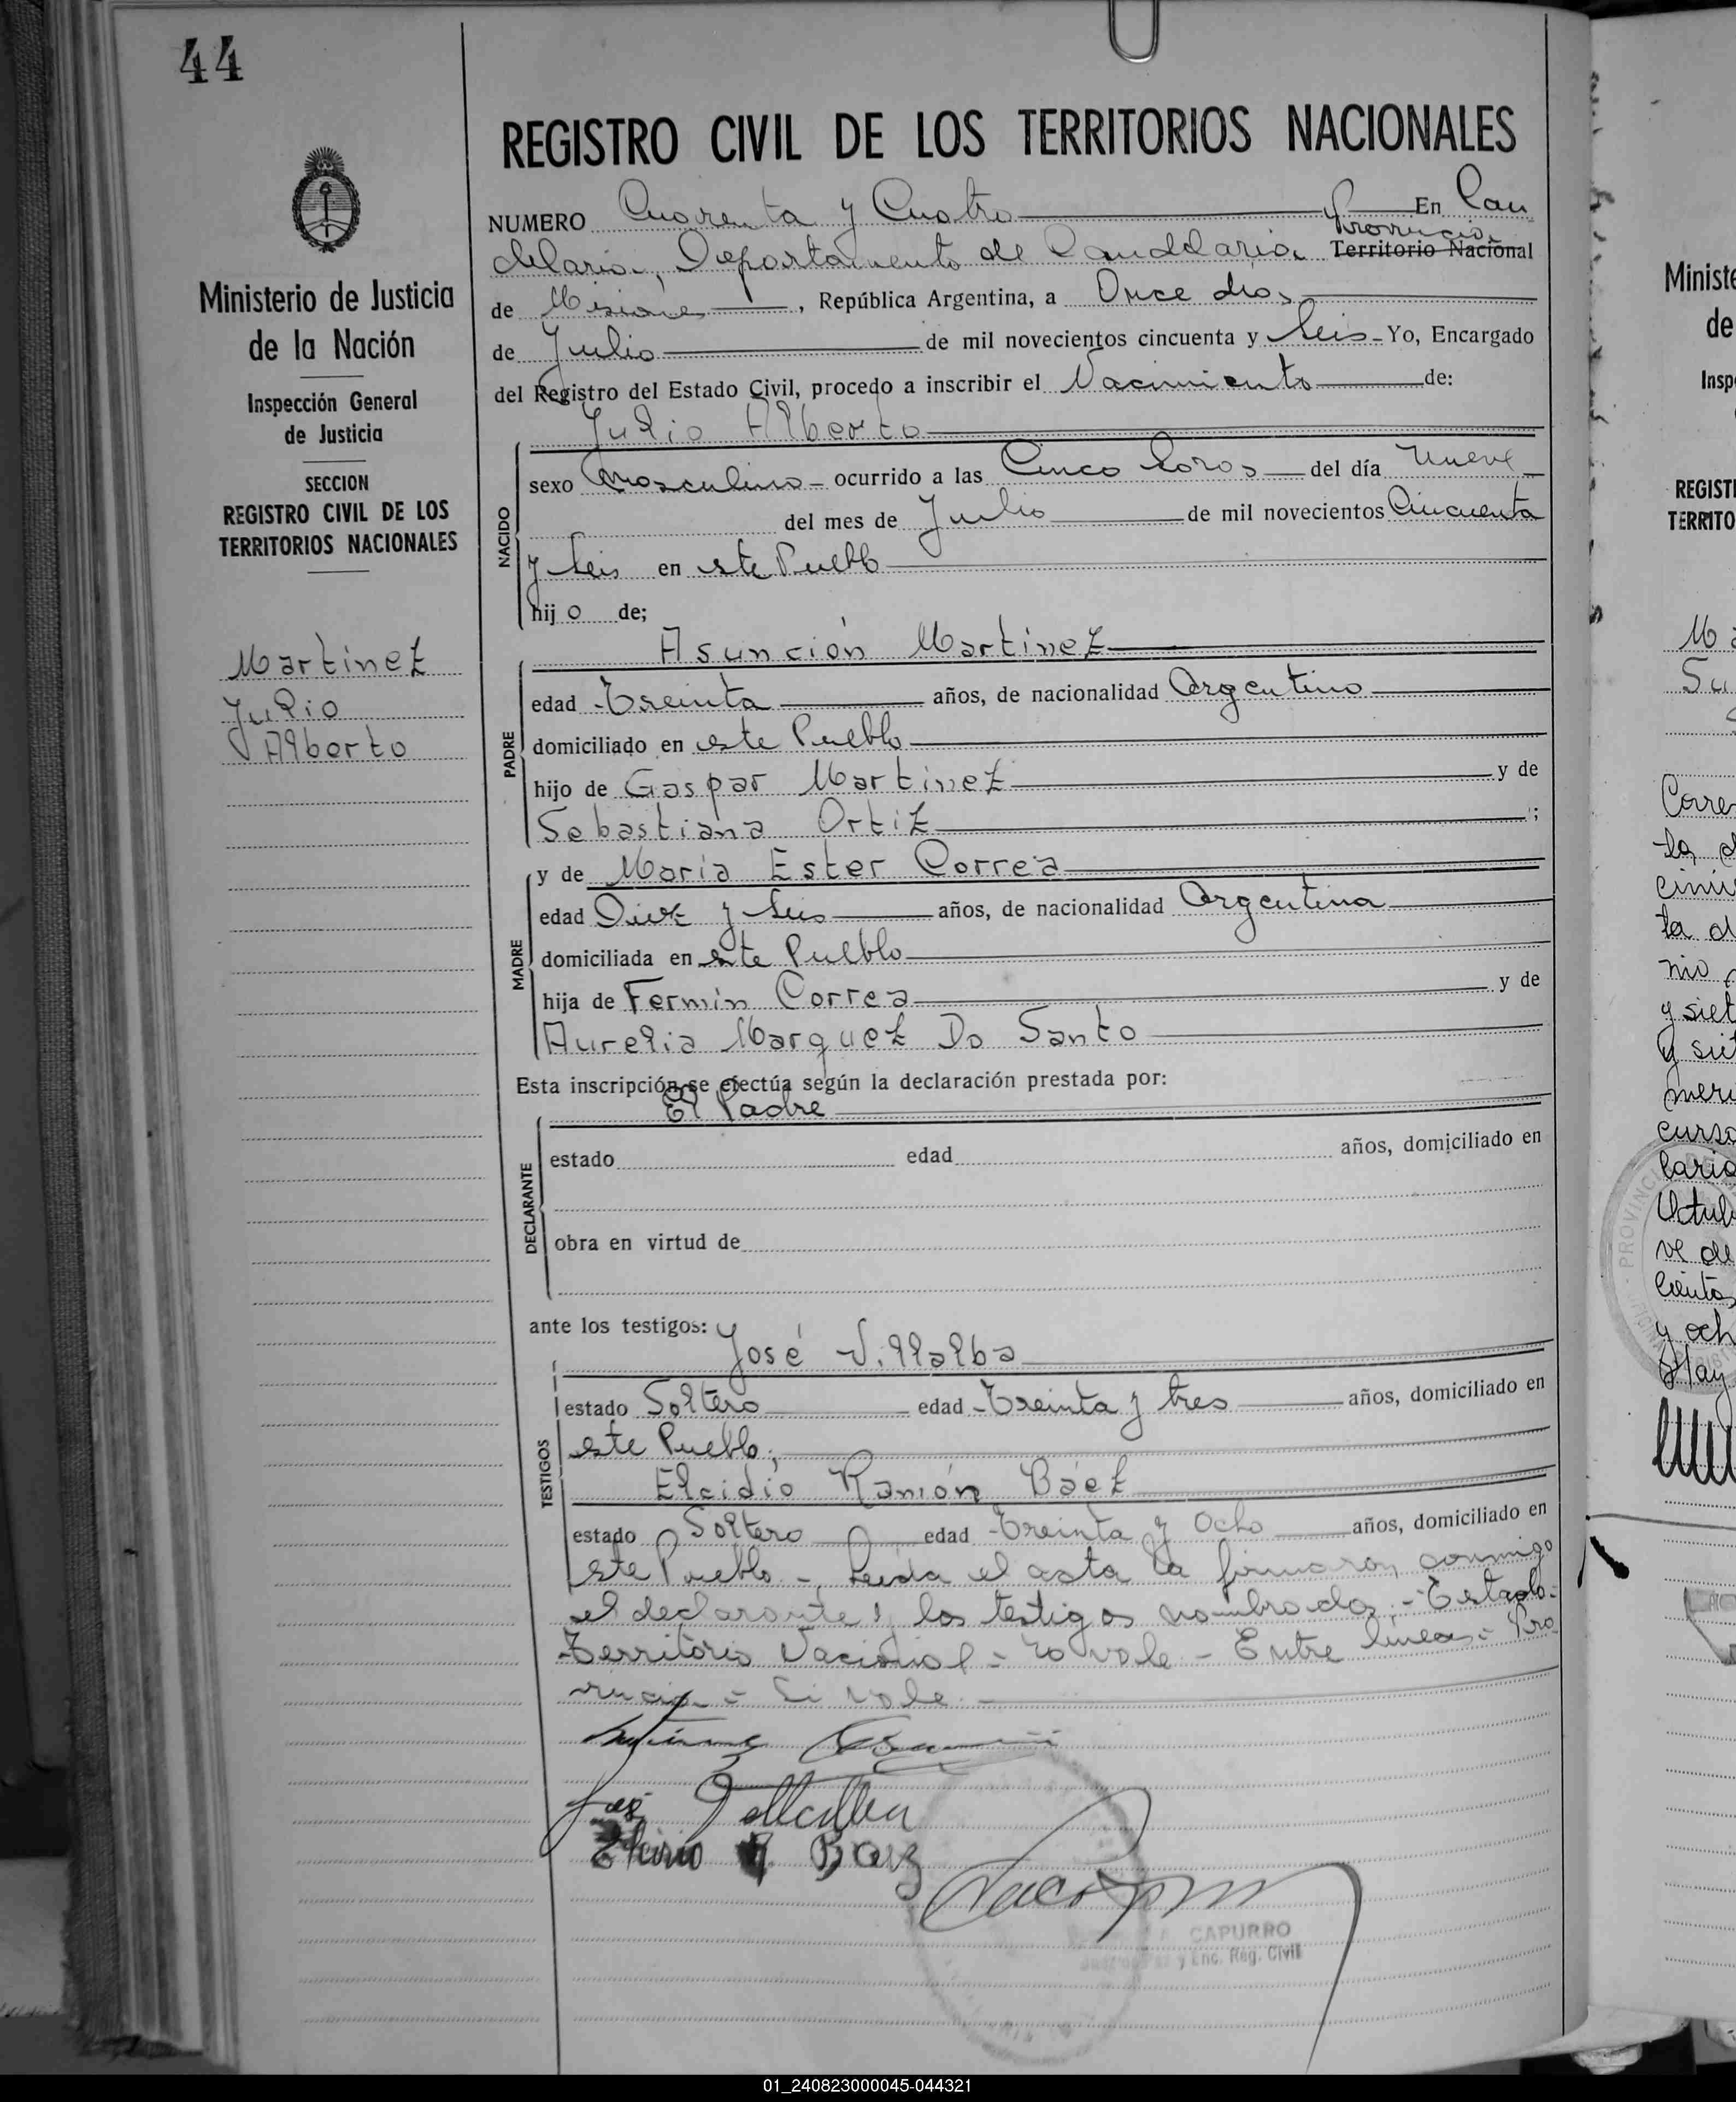 44
REGISTRO CIVIL DE LOS TERRITORIOS NACIONALES
NUMERO Cuarenta y Cuatro En Can
Provincia
delaria, Departamento de Candelaria Territorio Nacional
de Misiones, República Argentina, a Once días
de Julio de mil novecientos cincuenta y seis - Yo, Encargado
del Registro del Estado Civil, procedo a inscribir el Nacimiento de:
Julio Alberto
NACIDO
sexo masculino - ocurrido a las Cinco horas del día nueve
del mes de Julio de mil novecientos Cincuenta
y seis en este Pueblo
hijo de;
Asunción Martinez
PADRE
edad Treinta años, de nacionalidad Argentino
domiciliado en este Pueblo
hijo de Gaspar Martinez y de
Sebastiana Ortiz ;
MADRE
y de María Ester Correa
edad Diez y seis años, de nacionalidad Argentina
domiciliada en este Pueblo
hija de Fermín Correa y de
Aurelia Marquez Do Santo
Esta inscripción se efectúa según la declaración prestada por:
El Padre
DECLARANTE
estado edad años, domiciliado en
obra en virtud de
ante los testigos:
José Villalba
TESTIGOS
estado Soltero edad Treinta y tres años, domiciliado en
este Pueblo;
Elcidio Ramón Báez
estado Soltero edad Treinta y Ocho años, domiciliado en
este Pueblo.- Leida el acta la firmaron conmigo
el declarante y los testigos nombrados.- Estado:
Territorio Nacional = no vale - Entre líneas = Pro
vincia = Si vale.-
José Villalba
Elcidio R Baez
CAPURRO
y Enc. Reg. Civil
Ministerio de Justicia
de la Nación
Inspección General
de Justicia
SECCION
REGISTRO CIVIL DE LOS
TERRITORIOS NACIONALES
Martinez
Julio
Alberto
Ministe
de
Insp
REGISTI
TERRITO
Ma
Su
Corre
la d
cimi
la d
nio
y siet
y sie
meri
curso
laria
Octub
ve de
cientos
y och
Hay
PROVINCI
01_240823000045-044321